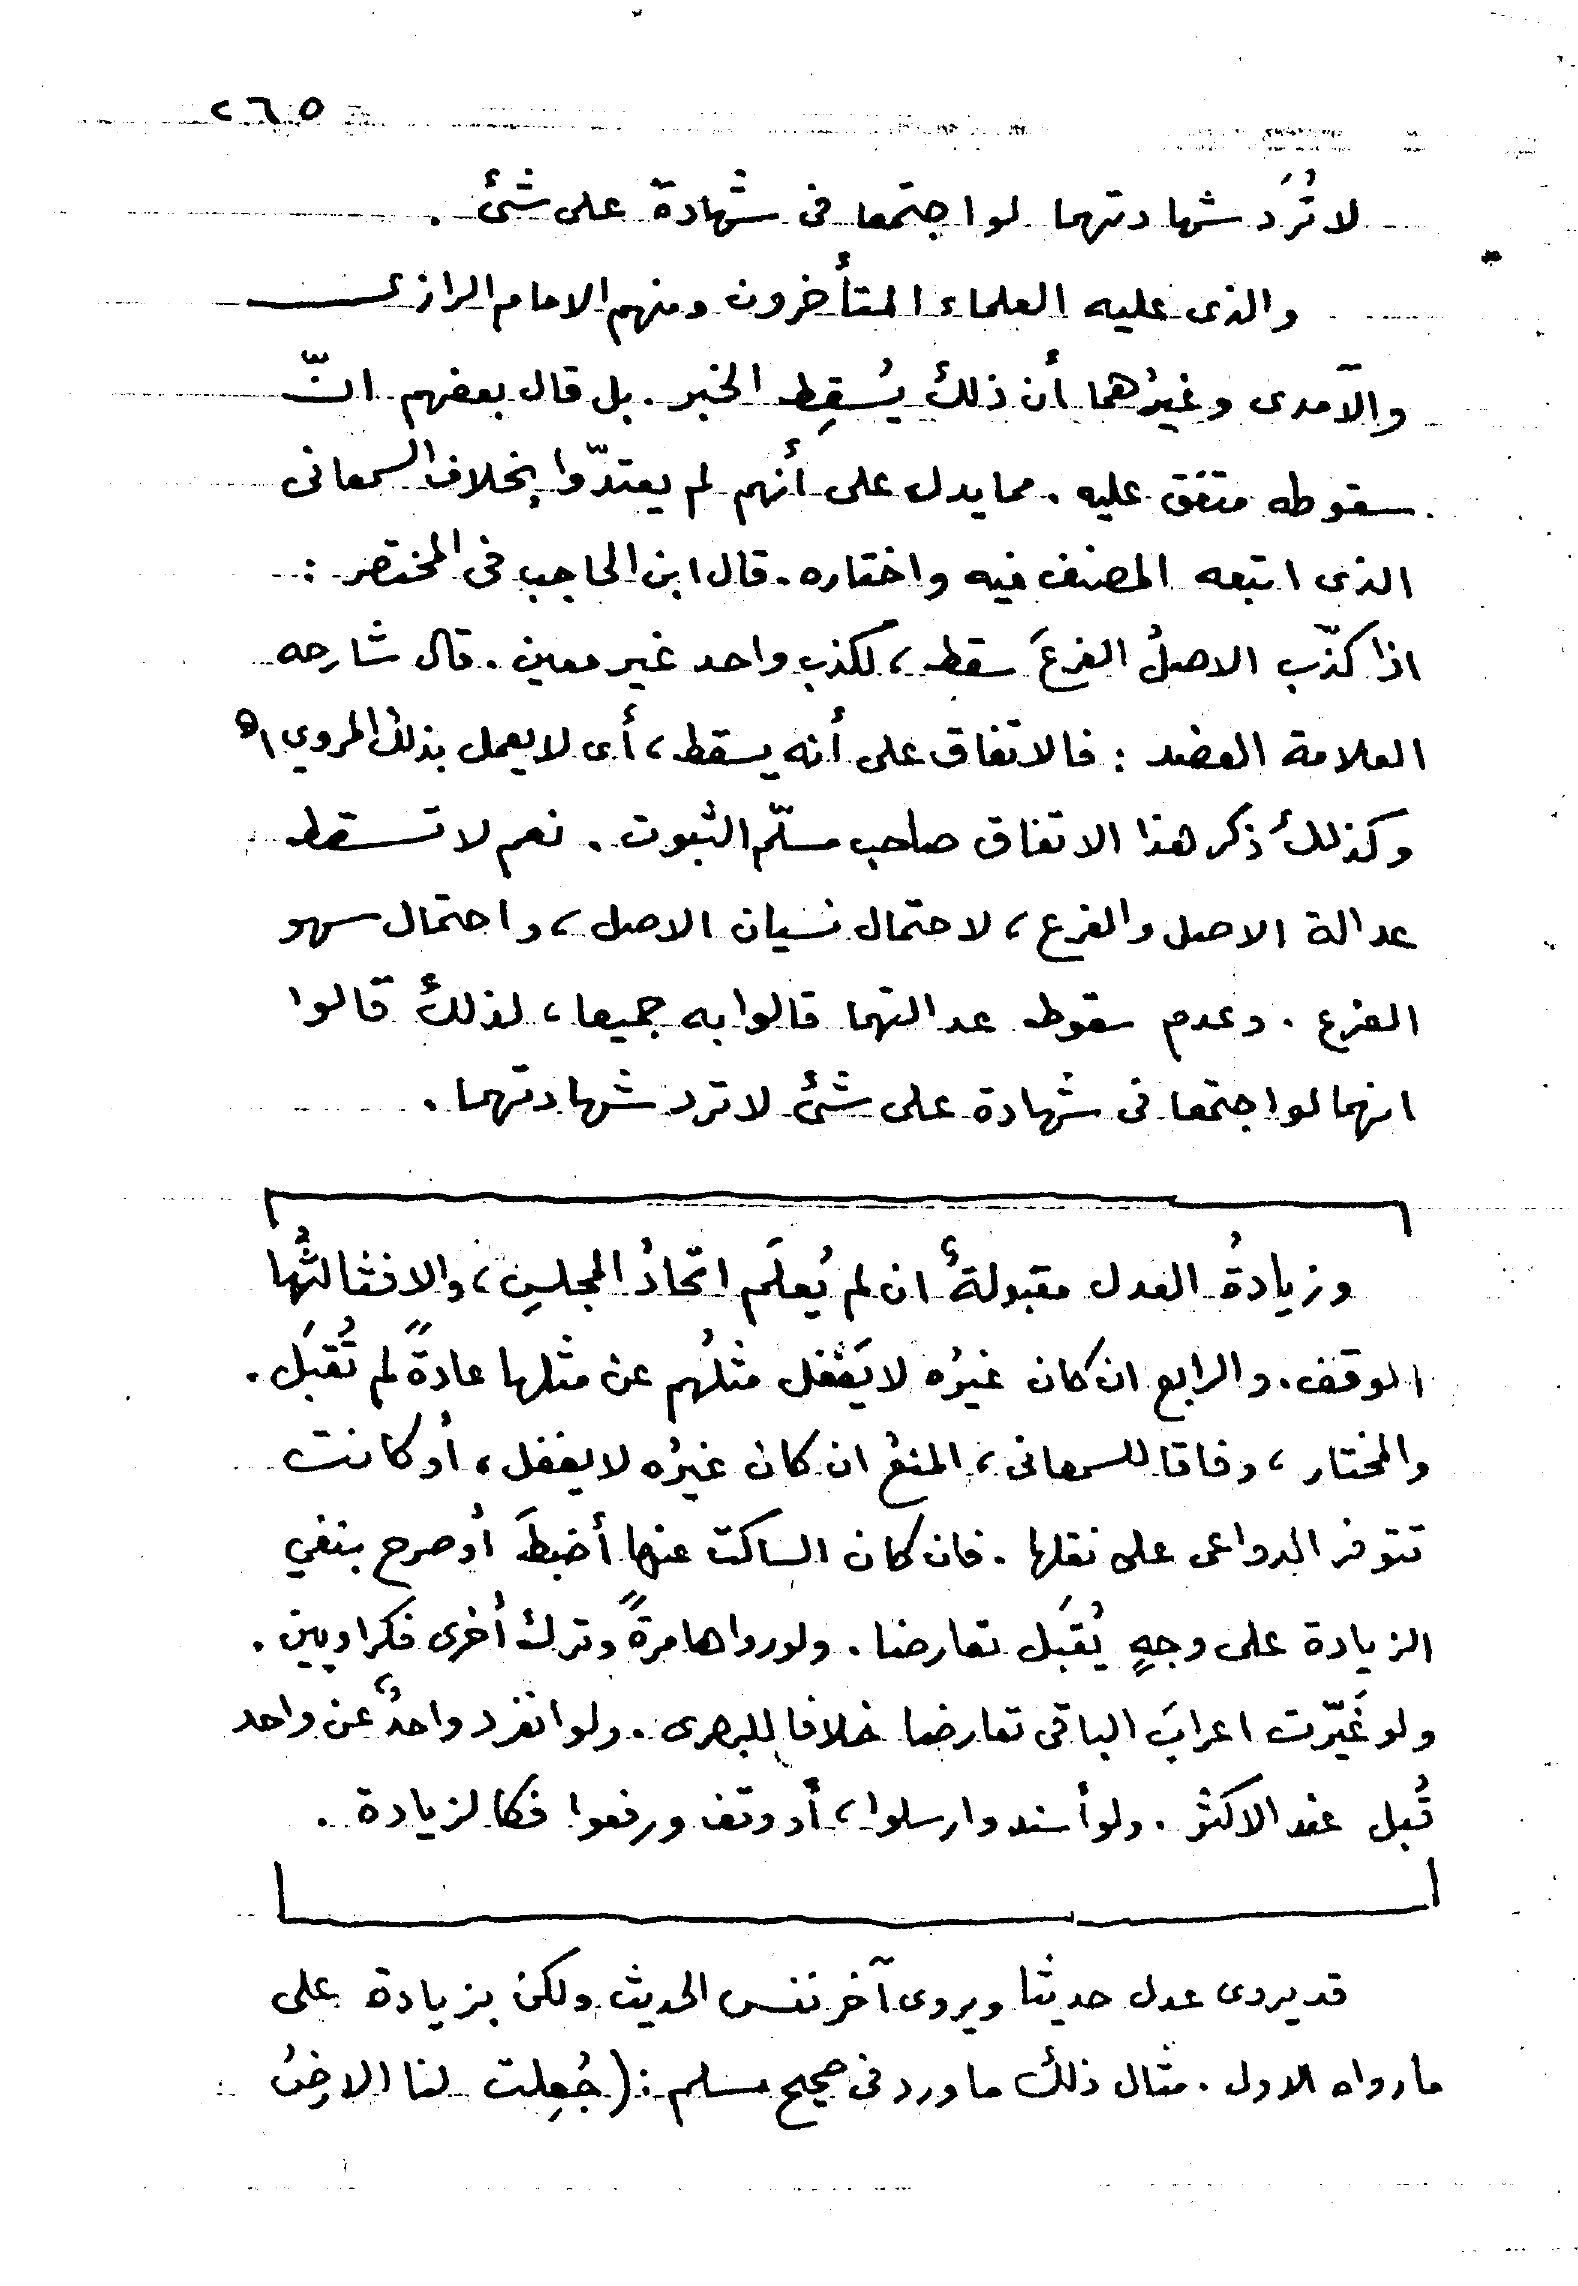 ٢٦٥
لا تُرَد شهادتهما لو اجتمعا فى شهادة على شئ .
والذى عليه العلماء المتأخرون ومنهم الامام الرازى
والآمدى وغيرُهما أن ذلك يُسقِط الخبر . بل قال بعضهم انّ
سقوطه متفق عليه . مما يدل على أنهم لم يعتدّوا بخلاف السمعانى
الذى اتبعه المصنف فيه واختاره . قال ابن الحاجب فى المختصر :
اذا كذّب الاصلُ الفرعَ سقط ، لكذب واحد غير معين . قال شارحه
العلامة العضد : فالاتفاق على أنه يسقط ، أى لا يعمل بذلك المروي اه
وكذلك ذكر هذا الاتفاق صاحب مسلّم الثبوت . نعم لا تسقط
عدالة الاصل والفرع ، لاحتمال نسيان الاصل ، واحتمال سهو
الفرع . وعدم سقوط عدالتهما قالوا به جميعا ، لذلك قالوا
انهما لو اجتمعا فى شهادة على شئ لا ترد شهادتهما .
وزيادةُ العدل مقبولةٌ ان لم يُعلَم اتحادُ المجلسِ ، والا فثالثُها
الوقف . والرابع ان كان غيرُه لا يَغفل مثلُهم عن مثلها عادةً لم تُقبَل .
والمختار ، وفاقا للسمعانى ، المنعُ ان كان غيرُه لا يغفل ، أو كانت
تتوفر الدواعى على نقلها . فان كان الساكت عنها أضبطَ أو صرح بنفي
الزيادة على وجهٍ يُقبَل تعارضا . ولو رواها مرةً وترك أخرى فكراويين .
ولو غَيّرت اعرابَ الباقى تعارضا خلافا للبصرى . ولو انفرد واحدٌ عن واحد
قُبل عند الاكثر . ولو أسند وارسلوا ، أو وقف ورفعوا فكالزيادة .
قد يروى عدل حديثا ويروى آخر نفس الحديث ولكن بزيادة على
ما رواه الاول . مثال ذلك ما ورد فى صحيح مسلم : (جُعِلت لنا الارضُ